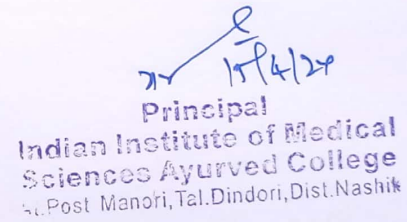 15/4/24
Principal
Indian Institute of Medical
Sciences Ayurved College
Post Manori, Tal.Dindori, Dist.Nashik